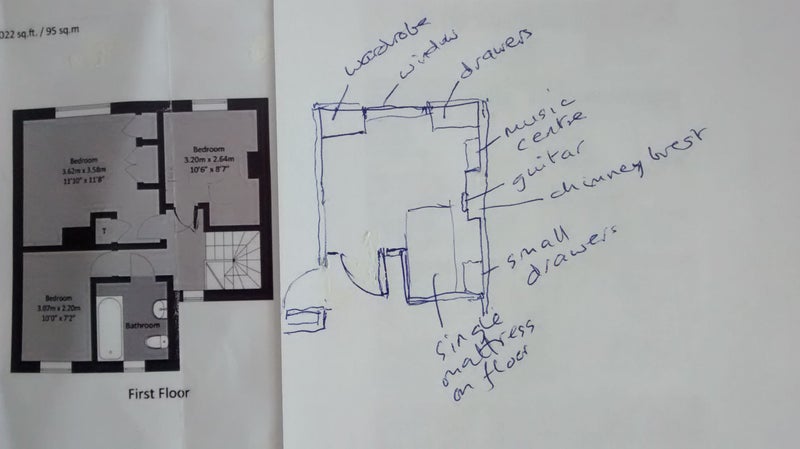 022 sq.ft. / 95 sq.m
Bedroom
3.62m x 3.58m
11'10" x 11'8"
Bedroom
3.20m x 2.64m
10'6" x 8'7"
T
Bedroom
3.07m x 2.20m
10'0" x 7'2"
Bathroom
First Floor
wardrobe
window
drawers
music
centre
guitar
chimney brest
small
drawers
single
mattress
on floor